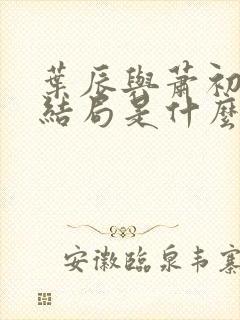 葉辰與蕭初
結局是什麼
安徽臨泉韦寨